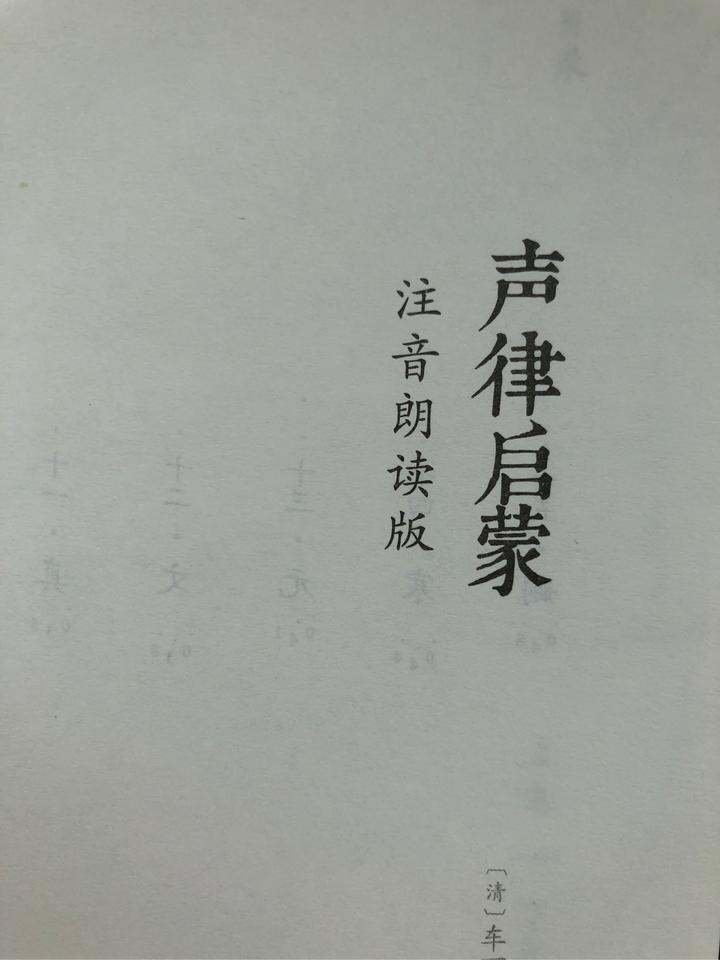 声律启蒙
注音朗读版
〔清〕车